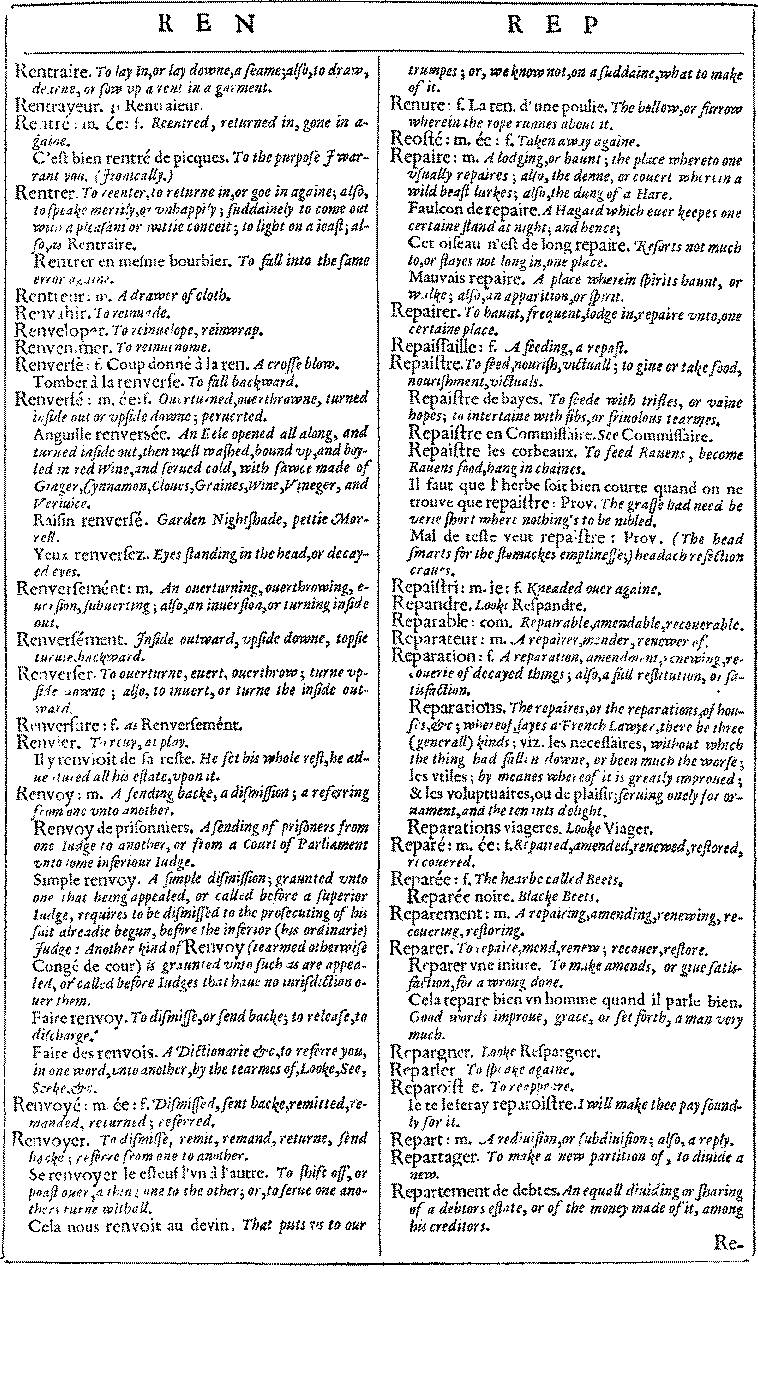 R E N
R E P
Rentraire. To lay in, or lay downe, a seame; also, to draw,
or sow up a rent in a garment.
Rentrayeur. Rentraieur.
Rentré: m. ée: f. Reentred, returned in, gone in a-
gaine.
C'est bien rentré de picques. To the purpose I war-
rant you. (Ironically.)
Rentrer. To reenter, to returne in, or goe in againe; also,
to speake merrily, or unhappily; suddainely to come out
with a pleasant or wittie conceit; to light on a ieast; al-
so, as Rentraire.
Rentrer en mesme bourbier. To fall into the same
error againe.
Rentreur: m. A drawer of cloth.
Renvahir. To reinuade.
Renveloper. To reinuelope, reinwrap.
Renvenimer. To reinuenome.
Renverse: f. Coup donné à la ren. A crosse blow.
Tomber à la renverse. To fall backward.
Renversé: m. ée: f. Ouerturned, ouerthrowne, turned
inside out or upside downe; peruerted.
Anguille renversée. An Eele opened all along, and
turned inside out, then well washed, bound up, and boy-
led in red Wine, and serued cold, with sawce made of
Ginger, Cynnamon, Cloues, Graines, Wine, Vineger, and
Veriuice.
Raisin renversé. Garden Nightshade, pettie Mor-
rell.
Yeux renversez. Eyes standing in the head, or decay-
ed eyes.
Renversemént: m. An ouerturning, ouerthrowing, e-
uersion, subuerting; also, an inuersion, or turning inside
out.
Renversément. Inside outward, vpside downe, topsie
turuie, backward.
Renverser. To ouerturne, euert, ouerthrow; turne vp-
side downe; also, to inuert, or turne the inside out-
ward.
Renversure: f. as Renversemént.
Renvier. To reuy, at play.
Il y renvioit de sa reste. He set his whole rest, he ad-
uentured all his estate, vpon it.
Renvoy: m. A sending backe, a dismission; a referring
from one vnto another.
Renvoy de prisonniers. A sending of prisoners from
one Iudge to another, or from a Court of Parliament
vnto some inferiour Iudge.
Simple renvoy. A simple dismission; graunted vnto
one that being appealed, or called before a superior
Iudge, requires to be dismissed to the prosecuting of his
suit alreadie begun, before the inferior (his ordinarie)
Judge: Another kind of Renvoy (tearmed otherwise
Congé de cour) is graunted vnto such as are appea-
led, or called before Iudges that haue no iurisdiction o-
uer them.
Faire renvoy. To dismisse, or send backe; to release, to
discharge.
Faire des renvois. A Dictionarie &c, to referre you,
in one word, vnto another, by the tearmes of, Looke, See,
Seeke, &c.
Renvoyé: m. ée: f. Dismissed, sent backe, remitted, re-
manded, returned; referred.
Renvoyer. To dismisse, remit, remand, returne, send
backe; referre from one to another.
Se renvoyer le esteuf l'vn à l'autre. To shift off, or
poast ouer, a thing one to the other; or, to serue one ano-
thers turne withall.
Cela nous renvoit au devin. That puts vs to our
trumpes; or, we know not, on a suddaine, what to make
of it.
Renure: f. La ren. d'une poulie. The hollow, or furrow
wherein the rope runnes about it.
Reosté: m. ée: f. Taken away againe.
Repaire: m. A lodging, or haunt; the place whereto one
vsually repaires; also, the denne, or couert wherein a
wild beast lurkes; also, the dung of a Hare.
Faulcon de repaire. A Hagard which euer keepes one
certaine stand at night; and hence;
Cet oiseau n'est de long repaire. Resorts not much
to, or stayes not long in, one place.
Mauvais repaire. A place wherein spirits haunt, or
walke; also, an apparition, or spirit.
Repairer. To haunt, frequent, lodge in, repaire vnto, one
certaine place.
Repaissaille: f. A feeding, a repast.
Repaistre. To feed, nourish, victuall; to giue or take food,
nourishment, victuals.
Repaistre de bayes. To feede with trifles, or vaine
hopes; to intertaine with fibs, or friuolous tearmes.
Repaistre en Commissaire. See Commissaire.
Repaistre les corbeaux. To feed Rauens, become
Rauens food, hang in chaines.
Il faut que l'herbe soit bien courte quand on ne
trouve que repaistre: Prov. The grasse had need be
verie short where nothing's to be nibled.
Mal de teste veut repaistre: Prov. (The head
smarts for the stomackes emptinesse;) headach refection
craues.
Repaistri: m. ie: f. Kneaded ouer againe.
Repandre. Looke Respandre.
Reparable: com. Repairable, amendable, recouerable.
Reparateur: m. A repairer, mender, renewer of.
Reparation: f. A reparation, amendment, renewing, re-
couerie of decayed things; also, a full restitution, or sa-
tisfaction.
Reparations. The repaires, or the reparations, of hou-
ses, &c; whereof, sayes a French Lawyer, there be three
(generall) kinds; viz. les necessaires, without which
the thing had fallen downe, or been much the worse;
les vtiles; by meanes whereof it is greatly improued;
& les voluptuaires, ou de plaisir; seruing onely for or-
nament, and the tenants delight.
Reparations viageres. Looke Viager.
Reparé: m. ée: f. Repaired, amended, renewed, restored,
recouered.
Reparée: f. The hearbe called Beets.
Reparée noire. Blacke Beets.
Reparement: m. A repairing, amending, renewing, re-
couering, restoring.
Reparer. To repaire, mend, renew; recouer, restore.
Reparer vne iniure. To make amends, or giue satis-
faction, for a wrong done.
Cela repare bien vn homme quand il parle bien.
Good words improue, grace, or set forth, a man very
much.
Repargner. Looke Respargner.
Reparler To speake againe.
Reparoistre. To reappeare.
Ie te le feray reparoistre. I will make thee pay sound-
ly for it.
Repart: m. A rediuision, or subdiuision; also, a reply.
Repartager. To make a new partition of, to diuide a
new.
Repartement de debtes. An equall diuiding or sharing
of a debtors estate, or of the money made of it, among
his creditors.
Re-